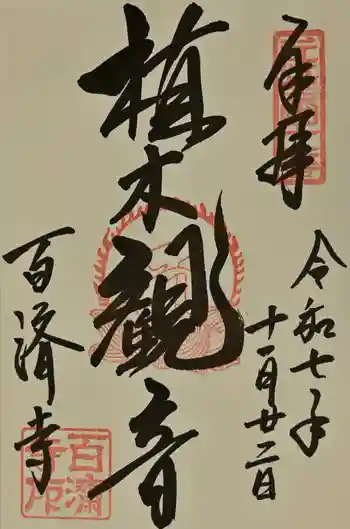 奉拝
令和七年
十一月廿二日
植木観音
百済寺
百済
寺印